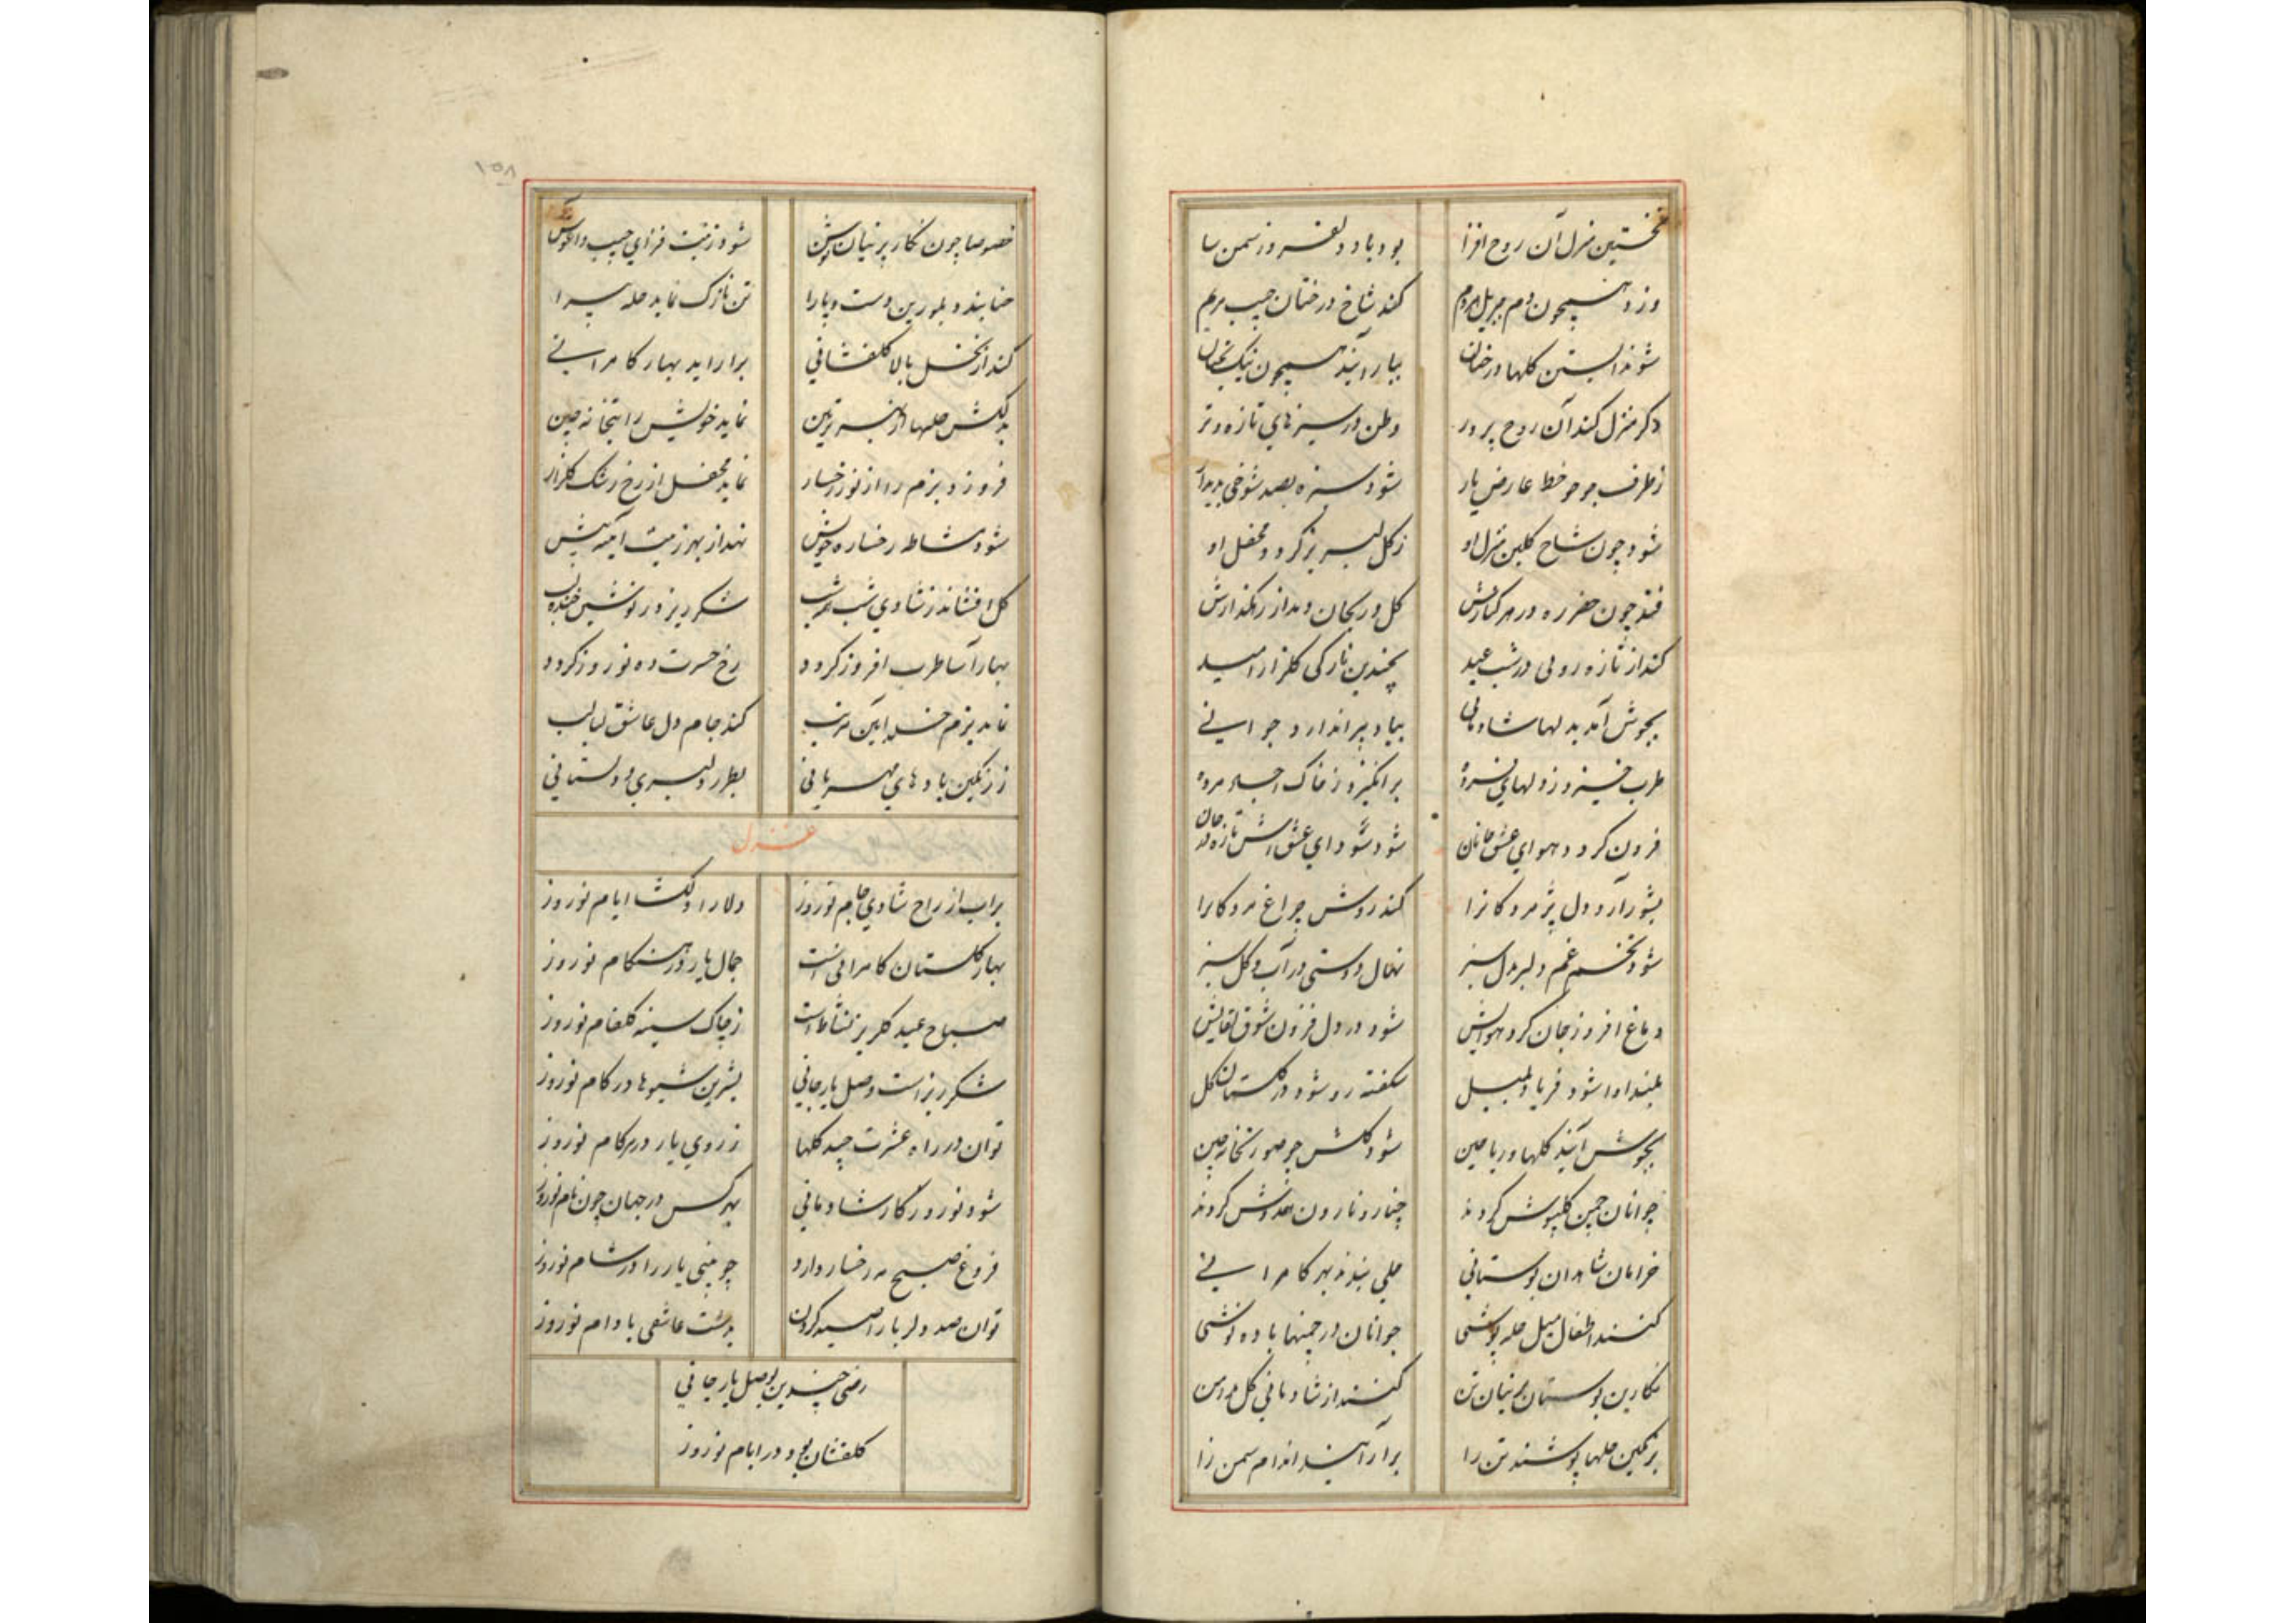 نخستین منزل آن روح افزا بود باد دلفروز سمن سا
وزد همچون دم جبریل هر دم کند شاخ درختان جیب مریم
شوند آبستن گلها درختان ببار آیند همچون نیک بختان
دگر منزل کند آن روح پرور وطن در سبزهای تازه و تر
ز طرف جو چو خط عارض یار شود سبزه بصد شوخی پدیدار
شود چون شاخ گلبن منزل او ز گل لبریز گردد محفل او
فتد چون خضر ره در هر کنارش گل و ریحان دمد از رهگذارش
کند از تازه رویی در شب عید بچندین نازکی گلزار امید
بجوش آمد بدلها شادمانی بیاد پیر اندازد جوانی
طرب خیزد ز دلهای فسرده برانگیزد ز خاک اجساد مرده
فزون گردد هوای عشق جانان شود سودای عشقش تازه در جان
بشور آرد دل پژمردگانرا کند روشن چراغ مردگانرا
شود تخم غم دلبر بدل سبز نهال دوستی در آب و گل سبز
دماغ افروز جان گردد هوایش شود در دل فزون شوق لقایش
بلند آوا شود فریاد بلبل شکفته رو شود در گلستان گل
بجوش آیند گلها و ریاحین شود گلشن چو صورتخانه چین
جوانان چمن گلپوش گردند چنار و نارون همدوش گردند
خرامان شاهدان بوستانی حلی بندند بهر کامرانی
کنند اطفال میل حله پوشی جوانان در چمنها باده نوشی
نگارین بوستان پرنیان تن کنند از شادمانی گل بدامن
برنگین حلها پوشند تن را برآرایند اندام سمن زا
۱۰۵۸
خصوصا چون نگار پرنیان پوش شود زینت فزای جیب و آغوش
حنا بندد بلورین دست و پا را تن نازک نماید حله پیرا
کند از نخل بالا گلفشانی برآراید بهار کامرانی
بدلکش حلها از بهر تزیین نماید خویش را بتخانه چین
فروزد بزم را از نور رخسار نماید محفل از رخ رشک گلزار
شود مشاطه رخساره خویش نهد از بهر زینت آینه پیش
گل افشاند ز شادی شب همه شب شکر ریزد ز نوشین خنده لب
بهار آسا طرب افروز گردد رخ حسرت ده نوروز گردد
نماید بزم خسرو آیین مرتب کند جام دل عاشق لبالب
ز رنگین بادهای مهربانی بطرز دلبری و دلستانی
غزل
پر آب از راح شادی جام نوروز دلارا و دلگشا ایام نوروز
بهار گلستان کامرانی است جمال یار در هنگام نوروز
صباح عید گلریز نشاط است ز چاک سینه گلفام نوروز
شکر ریز است وصل یار جانی بشیرین شیوها در کام نوروز
توان در راه عشرت چید گلها ز روی یار در هر گام نوروز
شود نوروز کار شادمانی بهر کس در جهان چون نام نوروز
فروغ صبح مه رخسار دارد چو بینی یار را در شام نوروز
توان صد دلربا را صید کردن بدست عاشقی با دام نوروز
رضی چندین بوصل یار جانی
گلفشان بود در ایام نوروز